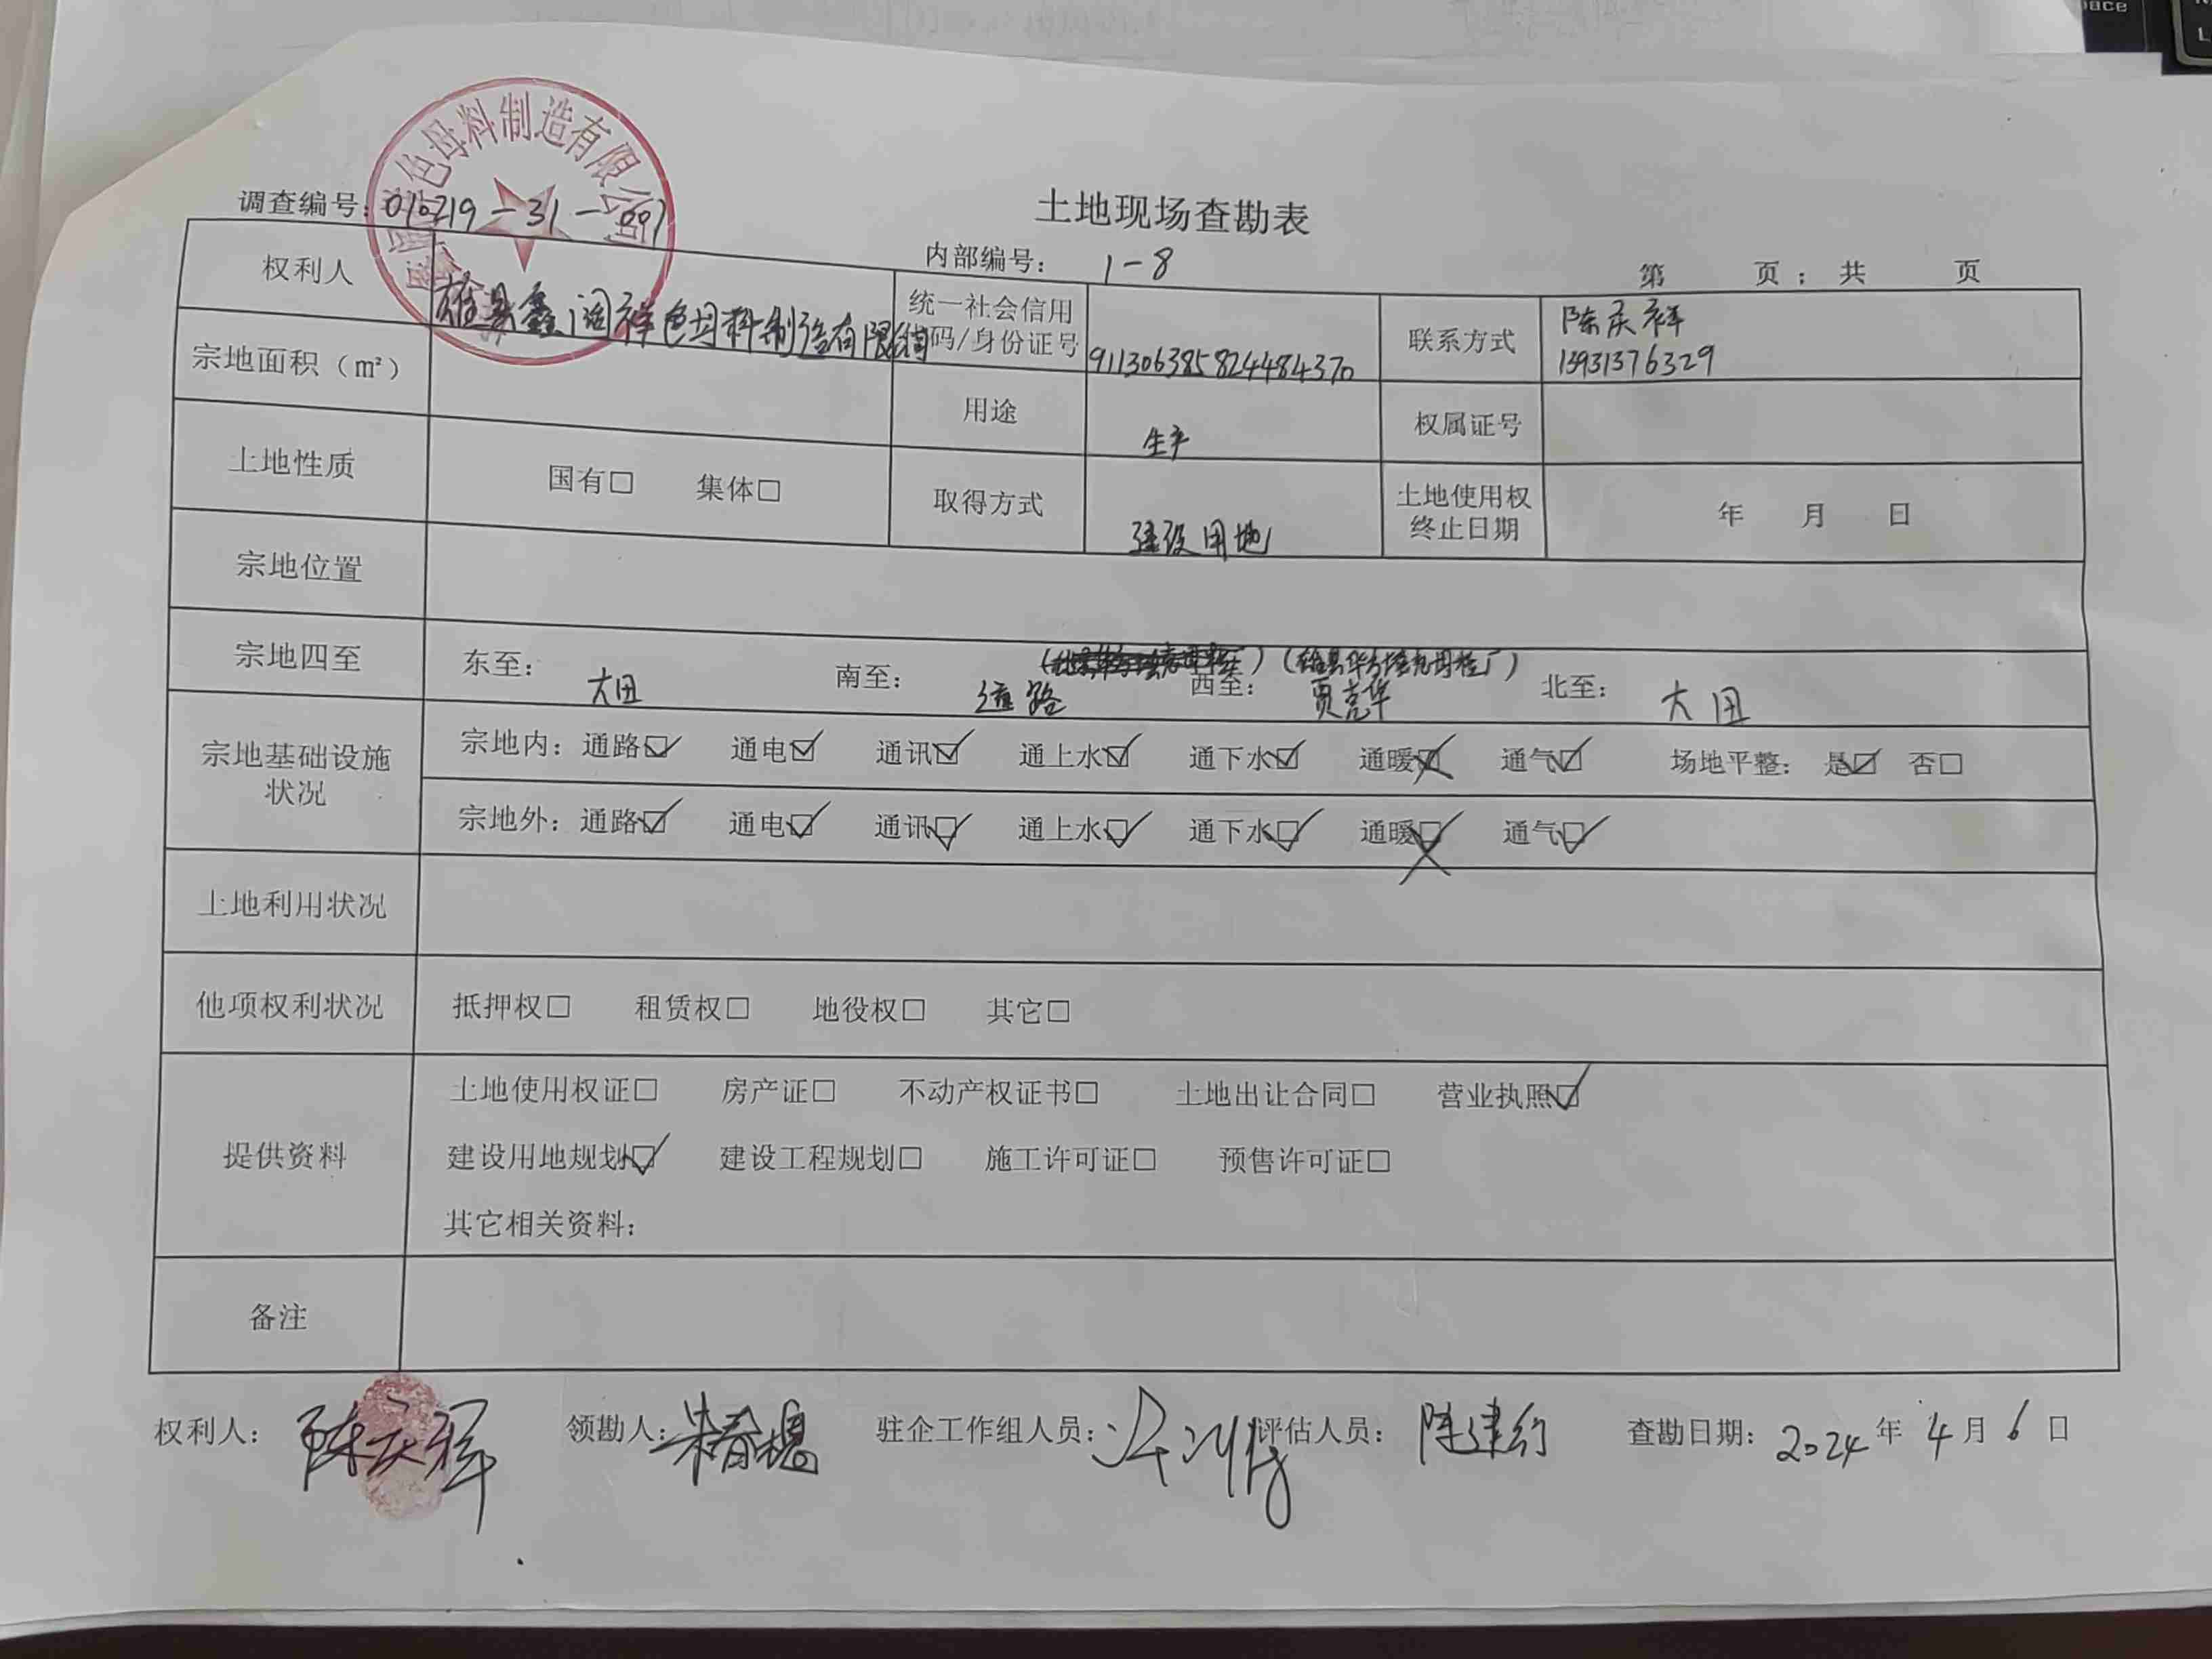 色母料制造有限公司
土地现场查勘表
调查编号：016219-31-001
内部编号： 1-8
第 页；共 页
权利人 雄县鑫润祥色母料制造有限公司 统一社会信用代码/身份证号 911306385824484370 联系方式 陈庆祥 13931376329
宗地面积（㎡） 用途 生产 权属证号
土地性质 国有□ 集体□ 取得方式 建设用地 土地使用权终止日期 年 月 日
宗地位置
宗地四至 东至： 大田 南至： 道路 西至： 贾克华 北至： 大田
宗地基础设施状况
宗地内：通路☑ 通电☑ 通讯☑ 通上水☑ 通下水☑ 通暖☒ 通气☑ 场地平整： 是☑ 否□
宗地外：通路☑ 通电☑ 通讯☑ 通上水☑ 通下水☑ 通暖☒ 通气☑
土地利用状况
他项权利状况 抵押权□ 租赁权□ 地役权□ 其它□
提供资料
土地使用权证□ 房产证□ 不动产权证书□ 土地出让合同□ 营业执照☑
建设用地规划☑ 建设工程规划□ 施工许可证□ 预售许可证□
其它相关资料：
备注
权利人： 陈庆祥 领勘人： 朱春槐 驻企工作组人员： 评估人员： 陈建行 查勘日期： 2024 年 4 月 6 日